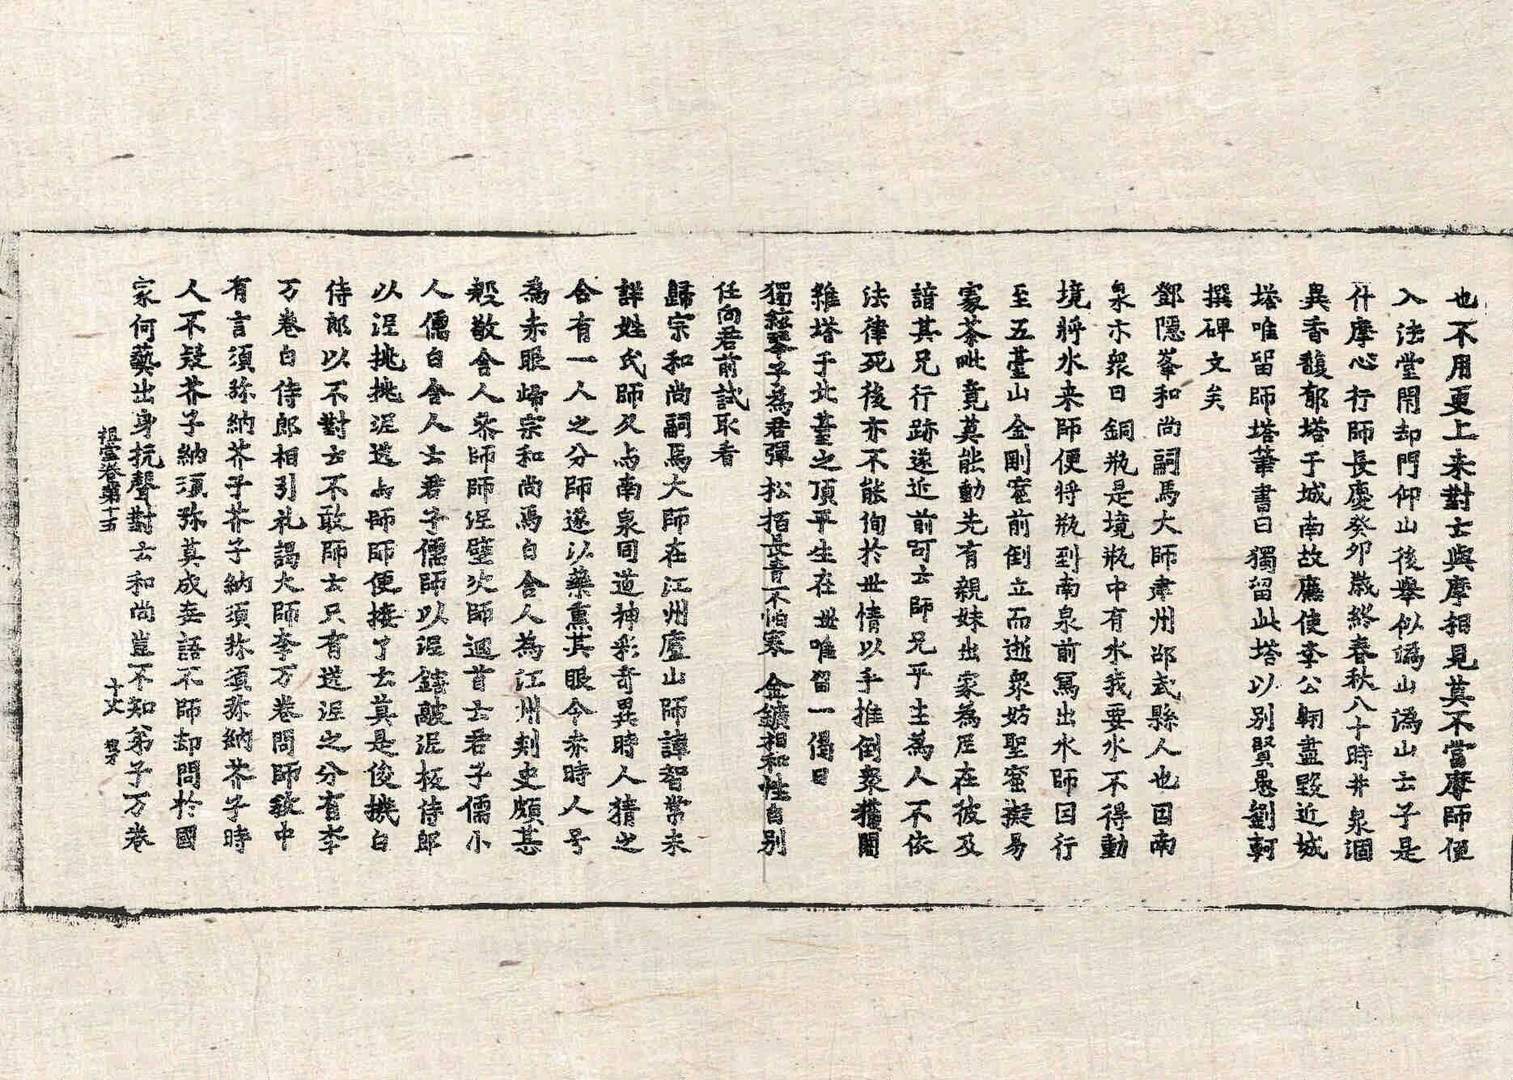 也不用更上来對士與摩相見莫不當摩師便
入法堂閇却門仰山後舉似溈山溈山云子是
什摩心行師長慶癸夘歲終春秋八十時井泉涸
異香馥郁塔于城南故廉使李公翱盡毀近城
塔唯留師塔筆書曰獨留此塔以別賢愚劉軻
撰碑文矣
鄧隱峯和尚嗣馬大師肅州邵武縣人也因南
泉示衆曰銅瓶是境瓶中有水我要水不得動
境將水来師便將瓶到南泉前寫出水師因行
至五臺山金剛窟前倒立而逝衆妨聖窟擬易
處荼毗竟莫能動先有親妹出家為尼在彼及
諳其兄行跡遂近前呵云師兄平生為人不依
法律死後亦不能徇於世情以手推倒衆獲闍
維塔于北臺之頂平生在世唯留一偈曰
獨絃琴子為君彈松栢長青不怕寒金鑛相和性自別
任向君前試取看
歸宗和尚嗣馬大師在江州廬山師諱智常未
詳姓氏師久与南泉同道神彩奇異時人猜之
合有一人之分師遂以藥熏其眼令赤時人号
為赤眼歸宗和尚焉白舍人為江州刾史頗甚
殷敬舍人叅師師泥壁次師迴首云君子儒小
人儒白舍人云君子儒師以泥鏝敲泥板侍郎
以泥挑挑泥送与師師便接了云莫是俊機白
侍郎以不對云不敢師云只有送泥之分有李
万卷白侍郎相引礼謁大師李万卷問師教中
有言須弥納芥子芥子納須弥須弥納芥子時
人不疑芥子納須弥莫成妄語不師却問於國
家何藝出身抗聲對云和尚豈不知弟子万卷
祖堂卷第十五
十丈